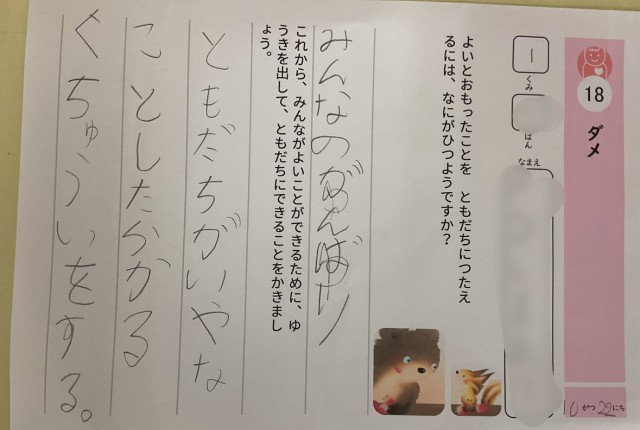 18 ダメ
10がつ22にち
1くみ
はん
なまえ
よいとおもったことを ともだちにつたえ
るには、なにがひつようですか?
みんなのがんばり
これから、みんながよいことができるために、ゆ
うきを出して、ともだちにできることをかきまし
ょう。
ともだちがいやな
ことしたらかる
くちゅういをする。